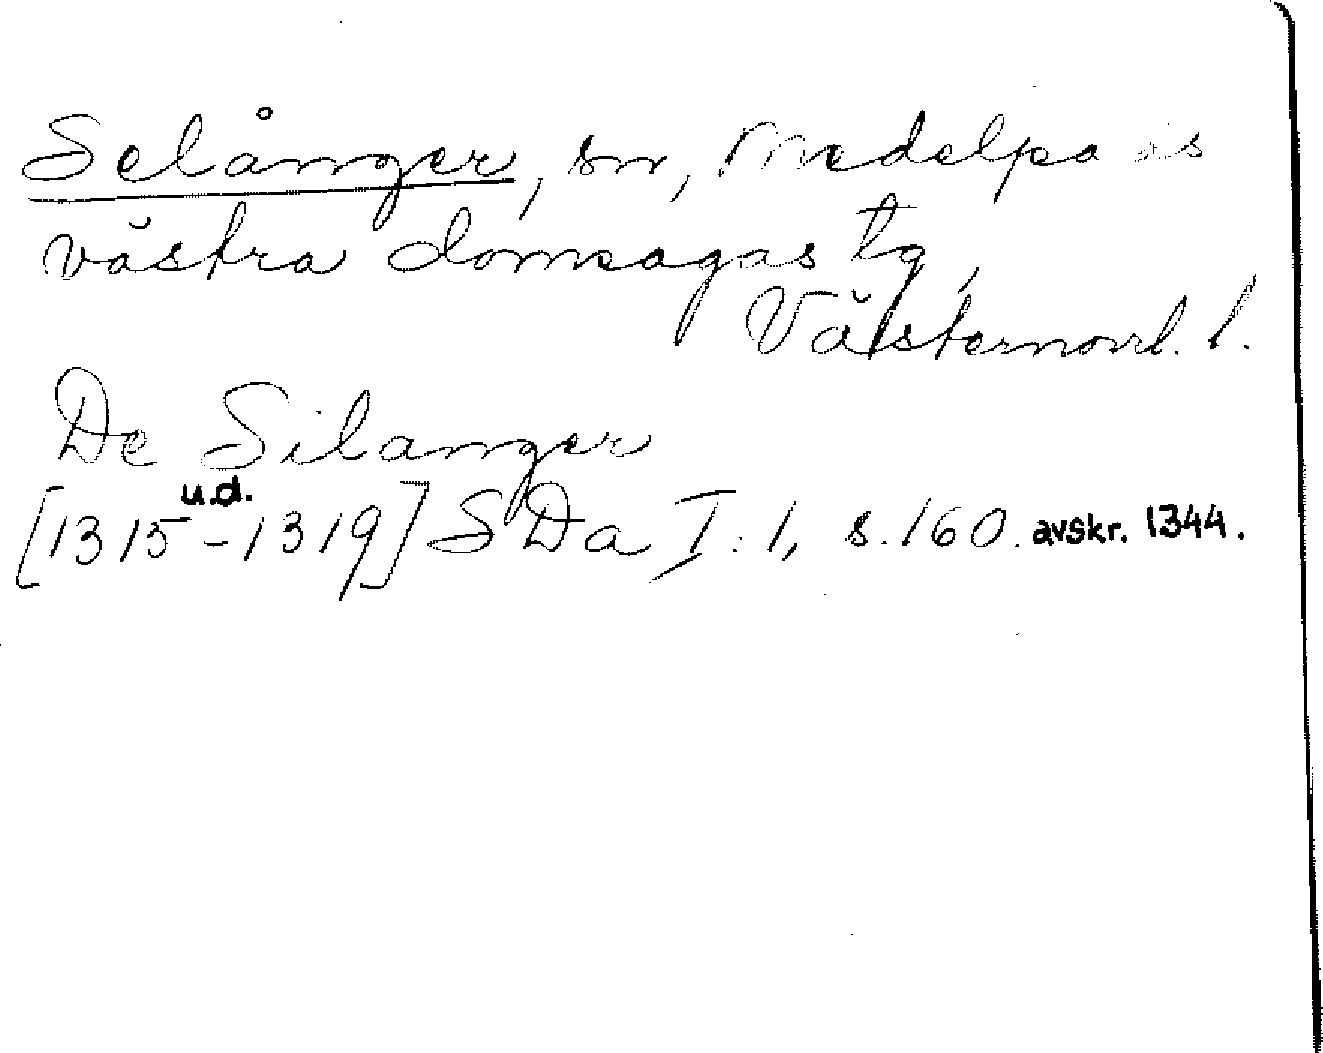 Selånger, sn, Medelpads
västra domsagas tg,
Västernorrl. l.
De Silanger
u.d.
[1315-1319] SDa I:1, s.160. avskr. 1344.